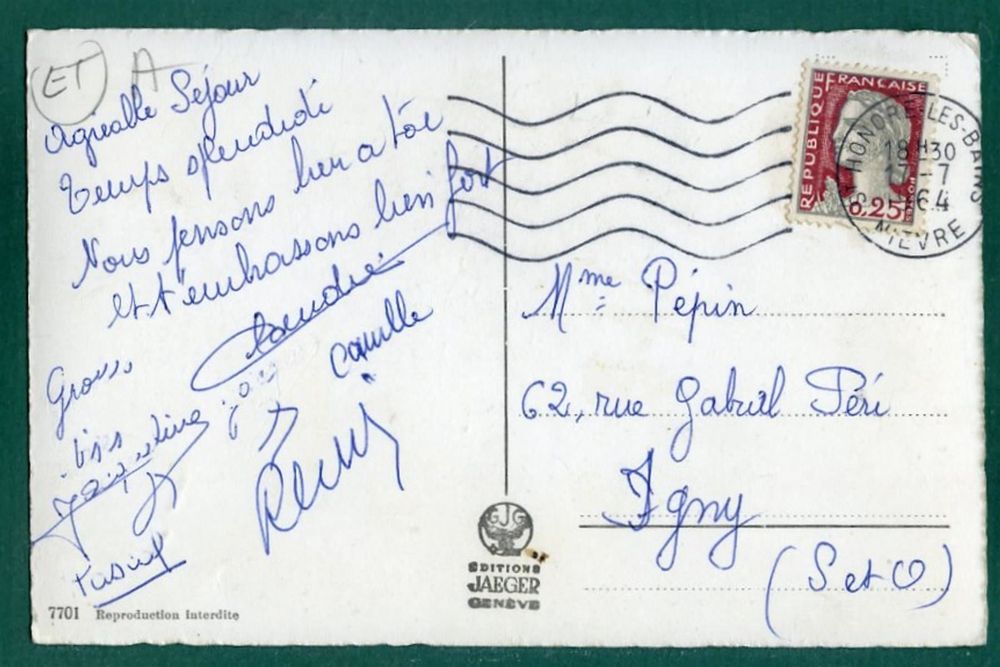 ET A
Agréable Séjour
temps splendide
Nous pensons bien a toi
et t'embrassons bien fort
Claudie
Camille
Gross.
Bises
Jacqueline
Rémy
Pascal
7701 Reproduction Interdite
GJG
EDITIONS
JAEGER
GENÈVE
REPUBLIQUE FRANÇAISE
0,25
ST HONORE-LES-BAINS
18H30
17-7
1964
NIEVRE
Mme Pépin
62, rue Gabriel Péri
Igny
(S et O)